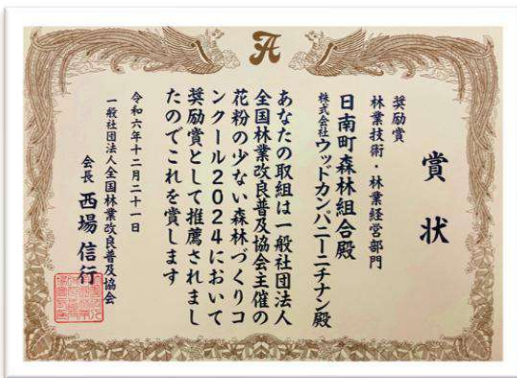 賞状
奨励賞
林業技術・林業経営部門
日南町森林組合殿
株式会社ウッドカンパニーニチナン殿
あなたの取組は一般社団法人
全国林業改良普及協会主催の
花粉の少ない森林づくりコ
ンクール2024において
奨励賞として推薦されまし
たのでこれを賞します
令和六年十二月二十一日
一般社団法人全国林業改良普及協会
会長 西場信行